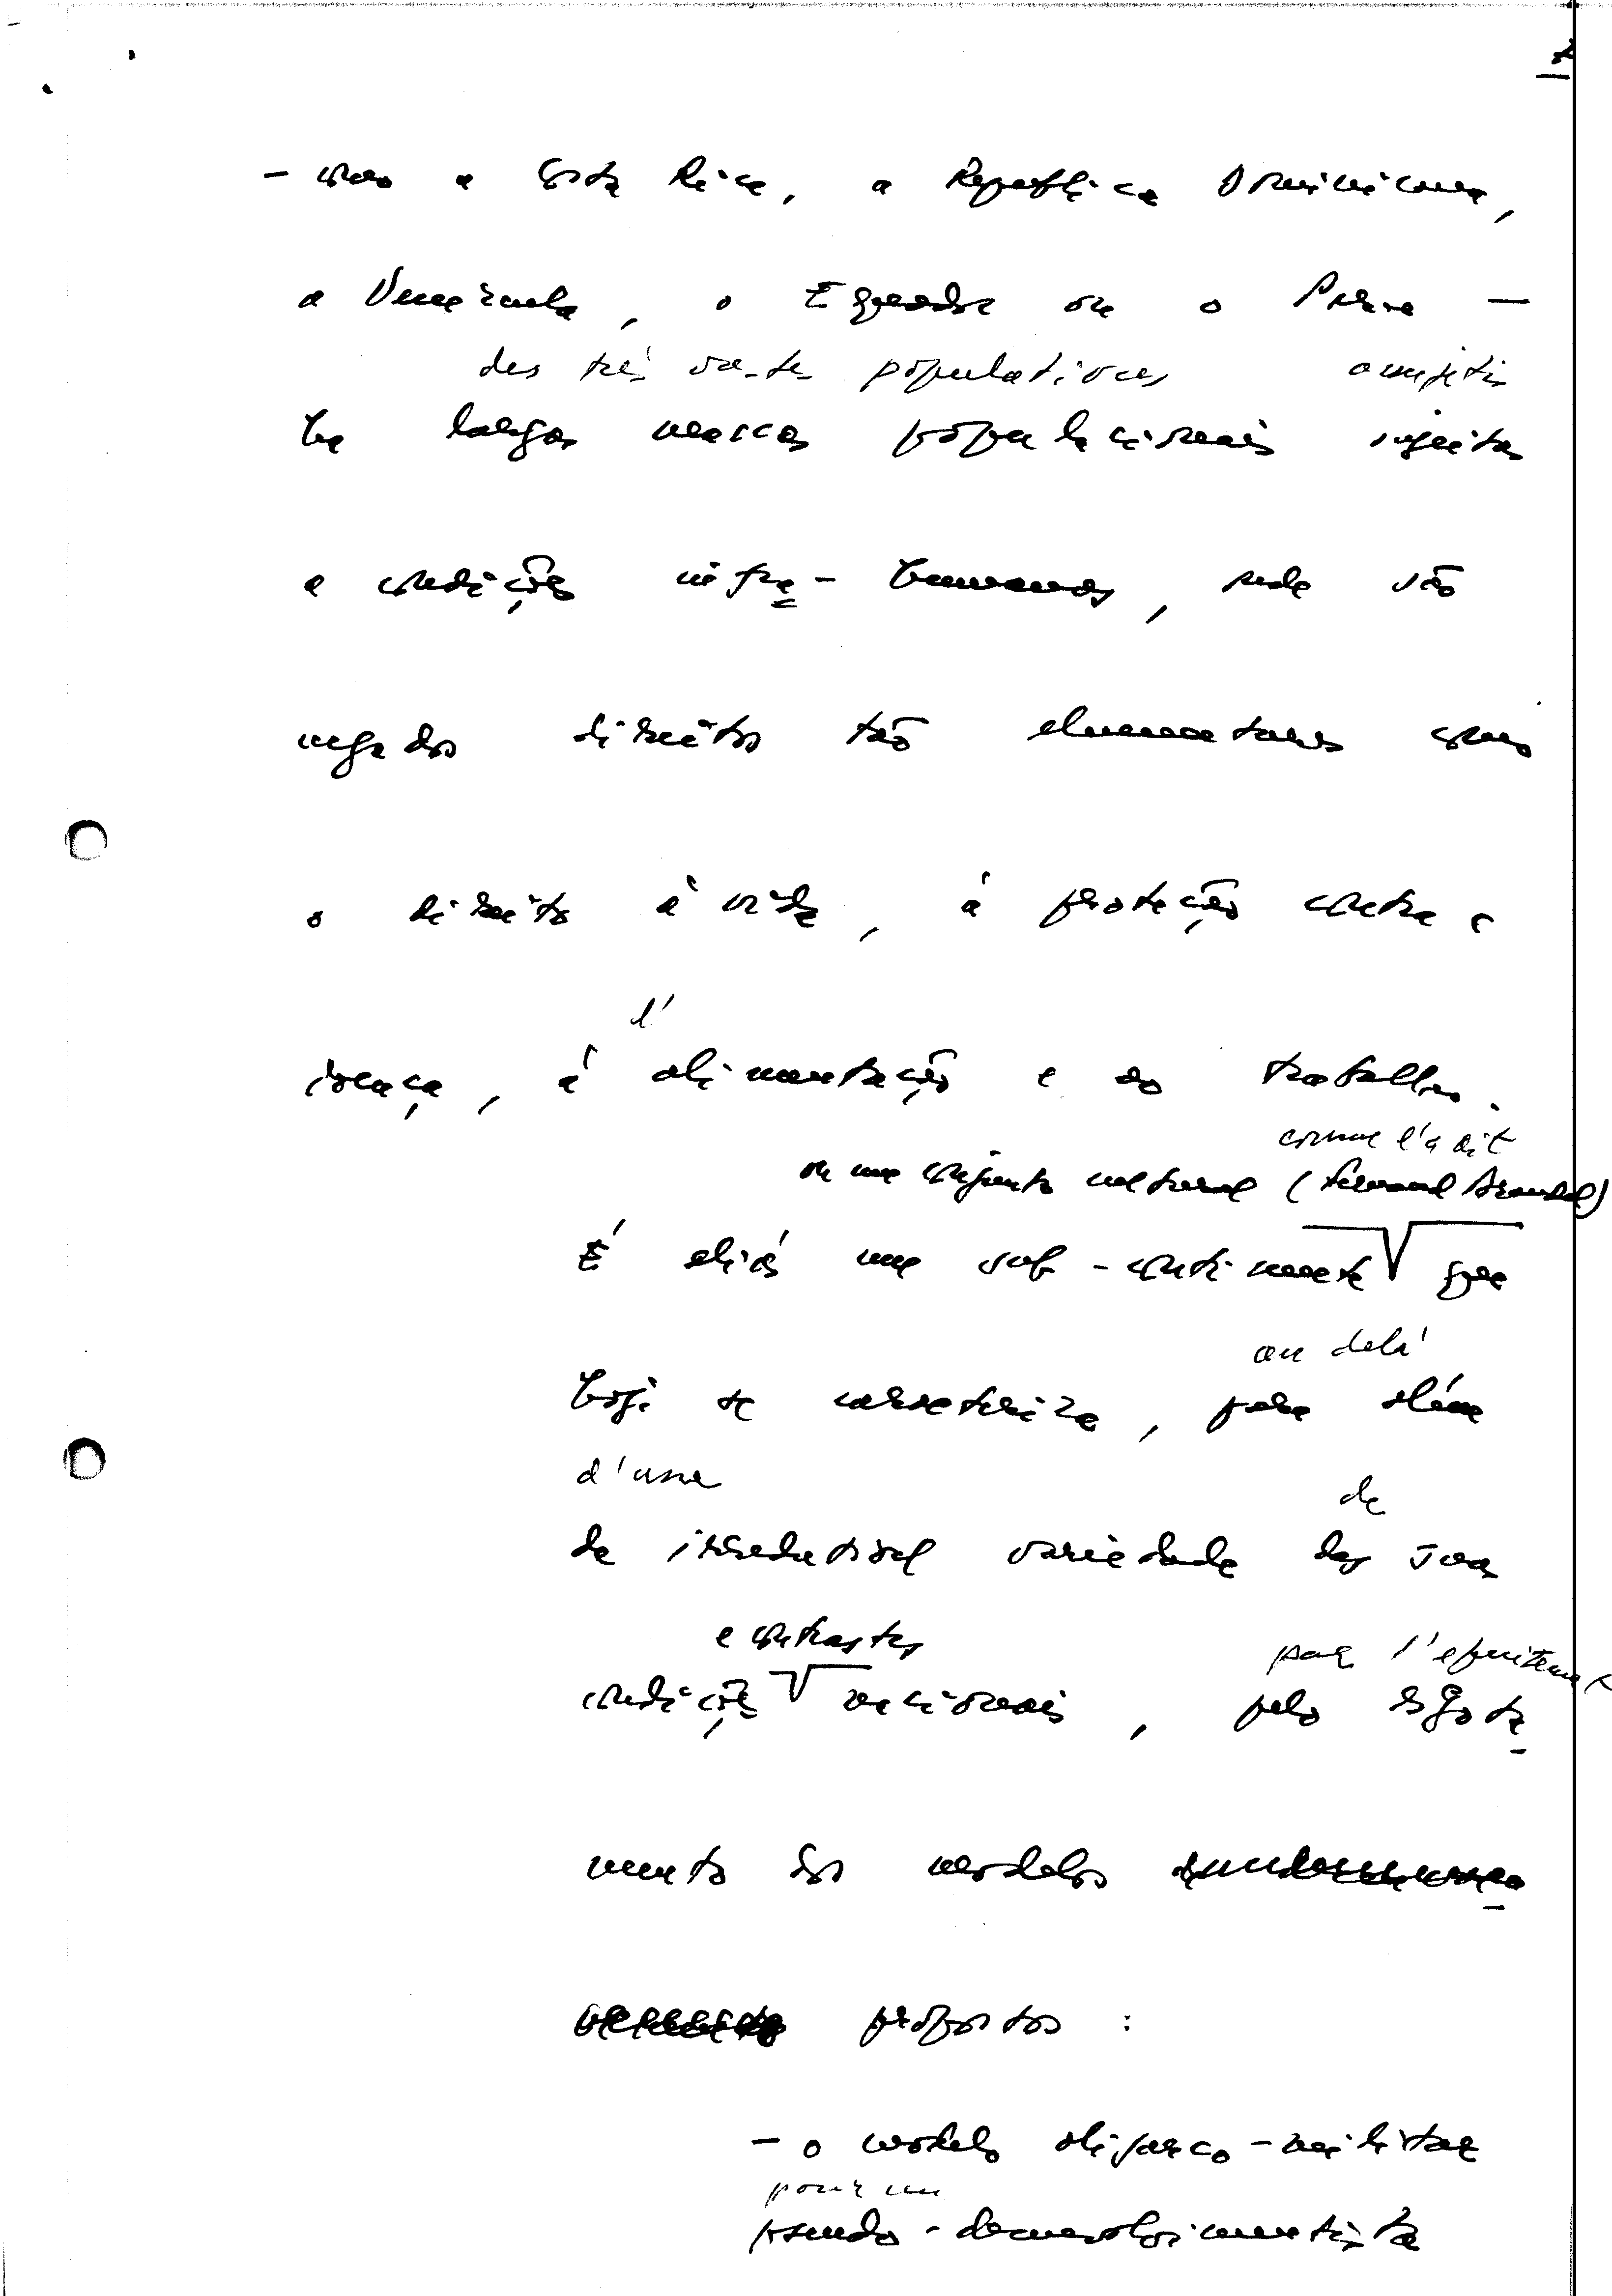 - como a Costa Rica, a República Dominicana,
a Venezuela, o Equador ou o Peru —
des très vastes populations assujetti
há largas massas populacionais sujeitas
a condições infra-humanas, onde são
negados direitos tão elementares como
o direito à vida, à proteção contra a
doença, à alimentação e ao trabalho.
l'
comme l'a dit
ou um conjunto cultural (Fernand Braudel)
É aliás um sub-continente que
au delà
hoje se caracteriza, para além
d'une
de
da irredutível variedade das suas
e contrastes
par l'épuitement
condições nacionais, pelo esgota-
mento dos modelos
propostos :
- o modelo oligarco-militar
pour un
pseudo-desenvolvimentista